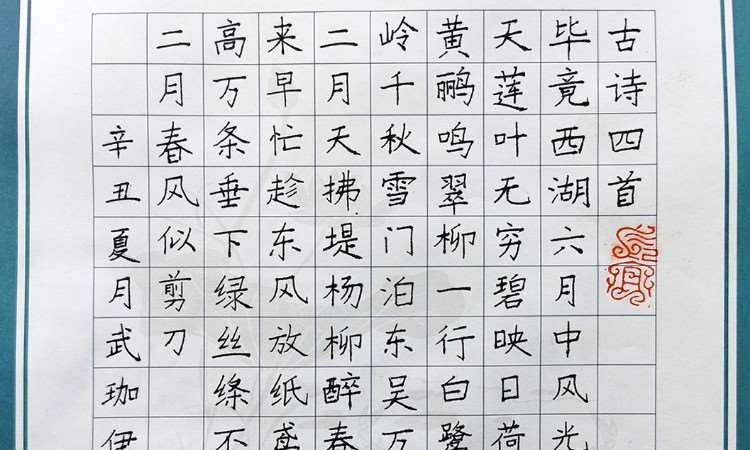 古诗四首
毕竟西湖六月中风光
天莲叶无穷碧映日荷
黄鹂鸣翠柳一行白鹭
岭千秋雪门泊东吴万
二月天拂堤杨柳醉春
来早忙趁东风放纸鸢
高万条垂下绿丝绦不
二月春风似剪刀
辛丑夏月武珈伊